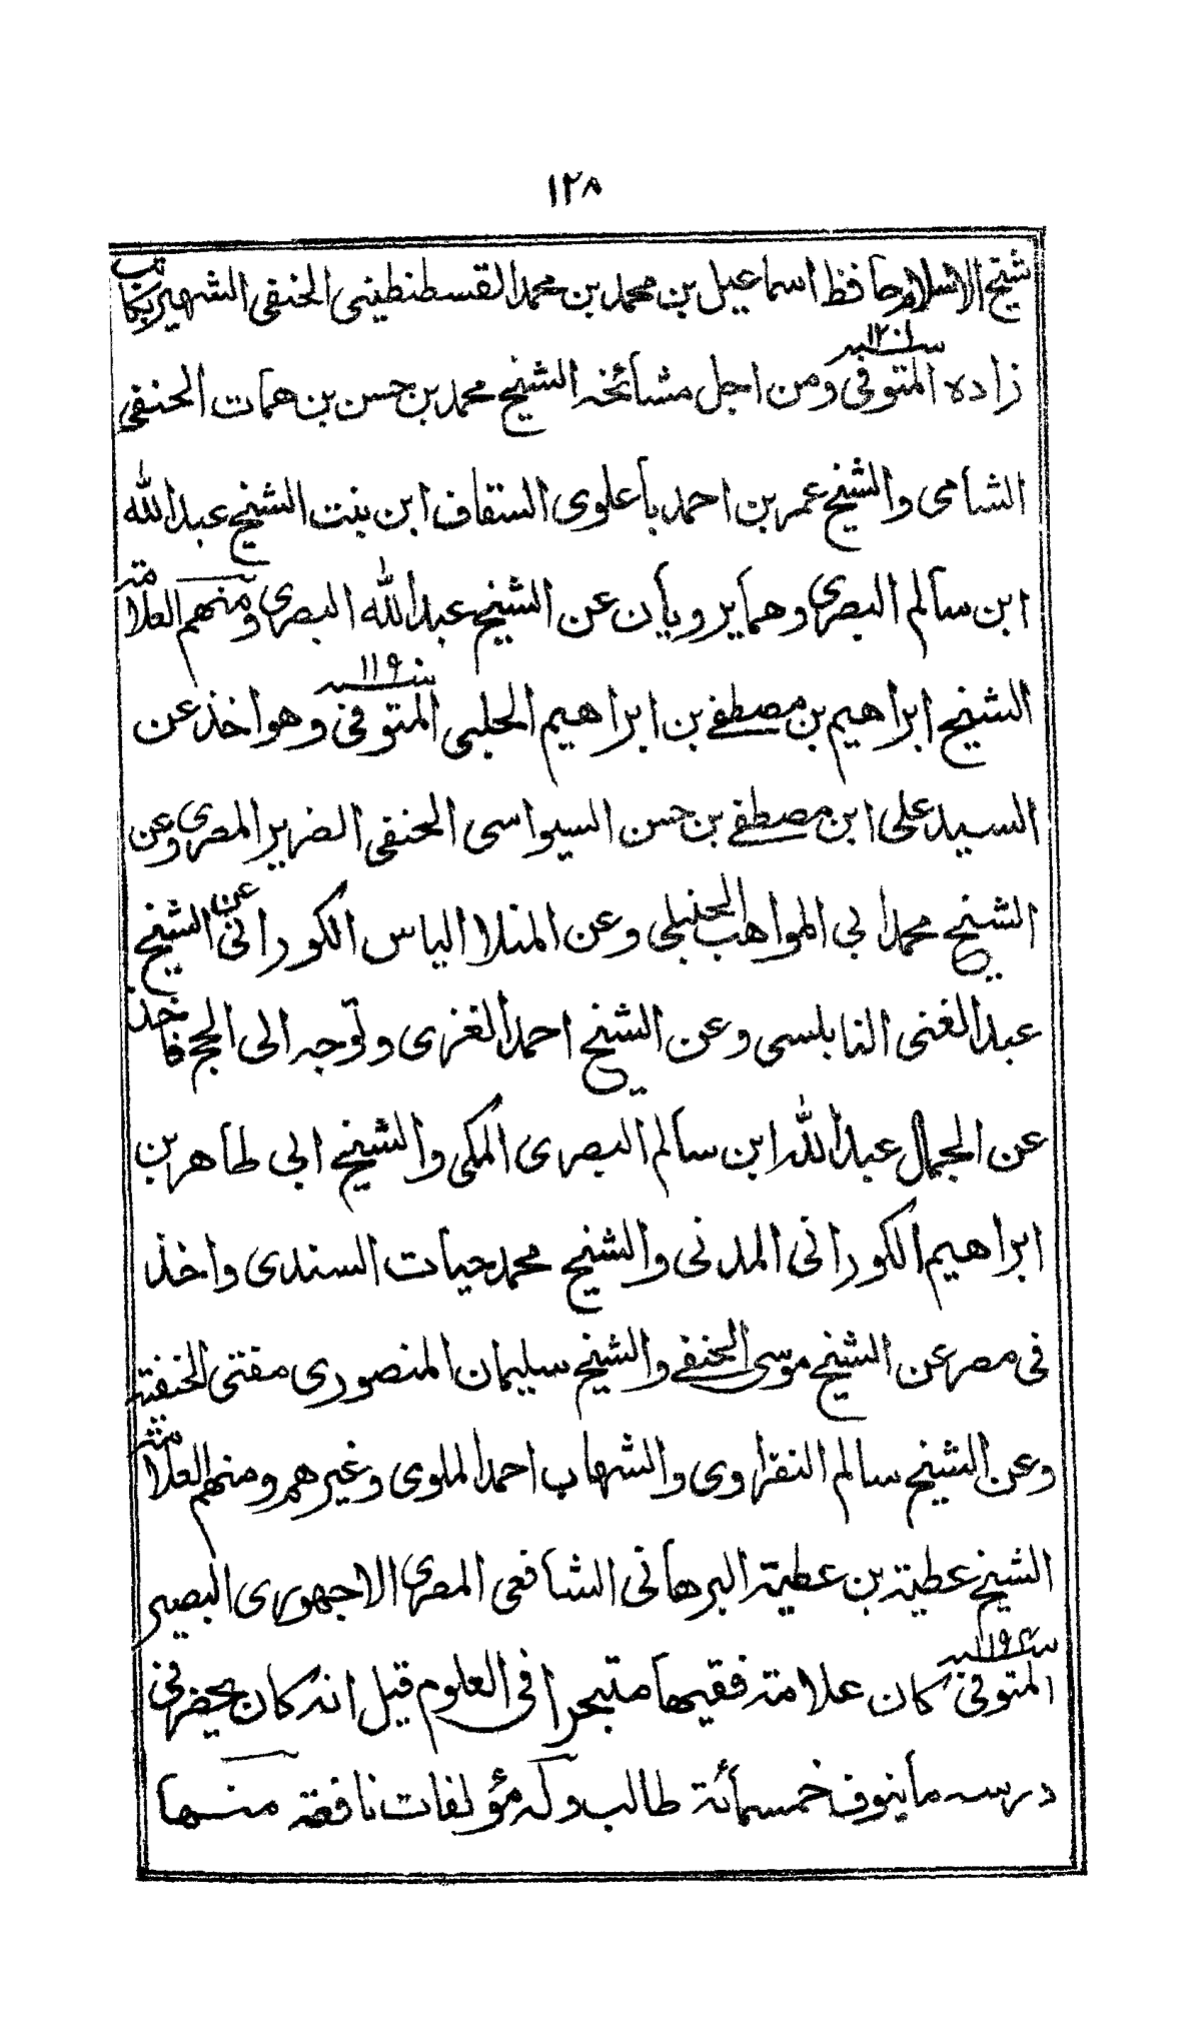 ١٢٨
شيخ الاسلام حافظ اسماعيل بن محمد بن محمد القسطنطينى الحنفى الشهير بكاتب
زاده المتوفى سنة ١٢٠١ ومن اجل مشائخه الشيخ محمد بن حسن بن همات الحنفى
الشامى والشيخ عمر بن احمد باعلوى السقاف ابن بنت الشيخ عبد الله
ابن سالم البصرى وهما يرويان عن الشيخ عبد الله البصرى ومنهم العلامة
الشيخ ابراهيم بن مصطفے بن ابراهيم الحلبى المتوفى سنة ١١٩٠ وهو اخذ عن
السيد على ابن مصطفے بن حسن السيواسى الحنفى الضرير المصرى وعن
الشيخ محمد ابى المواهب الحنبلى وعن المنلا الياس الكورانى عن الشيخ
عبد الغنى النابلسى وعن الشيخ احمد الغزى وتوجه الى الحج فاخذ
عن الجمال عبد الله ابن سالم البصرى المكى والشيخ ابى طاهر بن
ابراهيم الكورانى المدنى والشيخ محمد حيات السندى واخذ
فى مصر عن الشيخ موسى الحنفے والشيخ سليمان المنصورى مفتى الحنفية
وعن الشيخ سالم النفراوى والشهاب احمد الملوى وغيرهم ومنهم العلامة
الشيخ عطية بن عطية البرهانى الشافعى المصرى الاجهورى البصير
المتوفى سنة ١١٩٤ كان علامة فقيها متبحرا فى العلوم قيل انه كان يحضر فى
درسه ما ينوف خمسمائة طالب وله مؤلفات نافعة منها